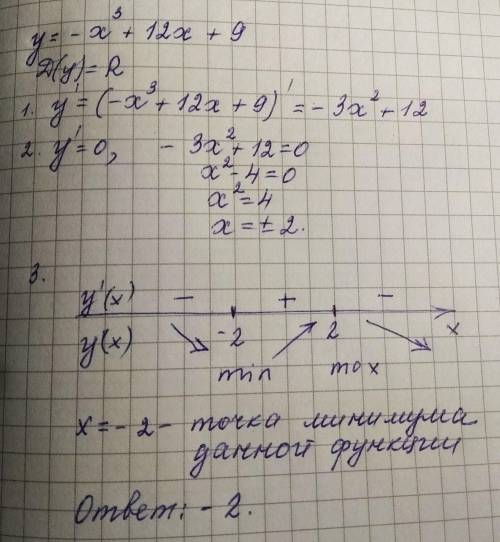 y = - x³ + 12x + 9
D(y) = R
1. y' = (-x³ + 12x + 9)' = - 3x² + 12
2. y' = 0, - 3x² + 12 = 0
x² - 4 = 0
x² = 4
x = ± 2.
3.
y'(x) - + -
y(x) -2 2 x
min max
x = - 2 - точка минимума
данной функции
Ответ: - 2.